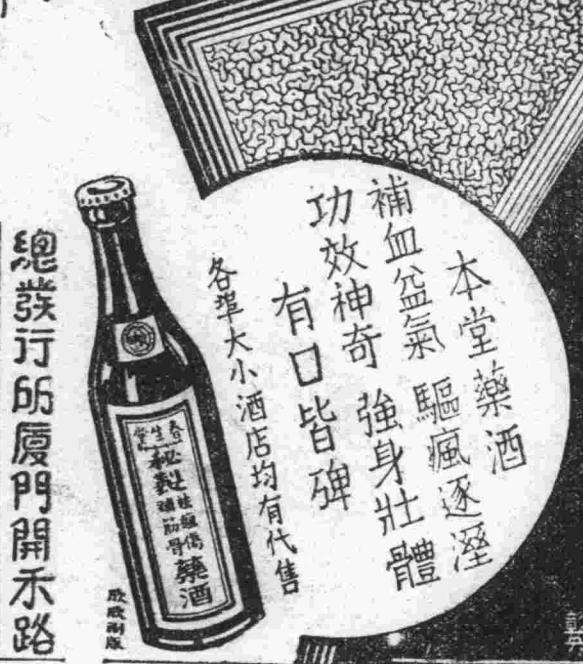 本堂藥酒
補血益氣 驅瘋逐溼
功效神奇 強身壯體
有口皆碑
各埠大小酒店均有代售
春生堂
秘製
藥酒
總發行所廈門開禾路